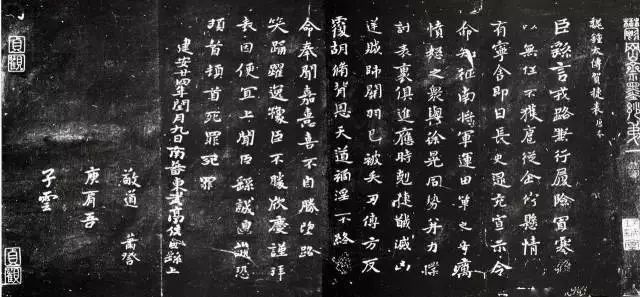 鬱岡齋墨
魏鍾太傅賀捷表
臣繇言戎路兼行履險冒寒臣
以無任不獲扈從企佇懸情無
有寧舍即日長史逯充宣示令
命知征南將軍運田單之奇厲
憤怒之衆與徐晃同勢并力撲
討表裏俱進應時剋捷馘滅凶
逆賊帥關羽已被矢刃傅方反
覆胡脩背恩天道禍淫不終厥
命奉聞嘉憙喜不自勝望路載
笑踊躍逸豫臣不勝欣慶謹拜
表因便宜上聞臣繇誠惶誠恐
頓首頓首死罪死罪
建安廿四年閏月九日南蕃東武亭侯臣繇上
敬道 蕭登
庾肩吾
子雲
貞觀
貞觀